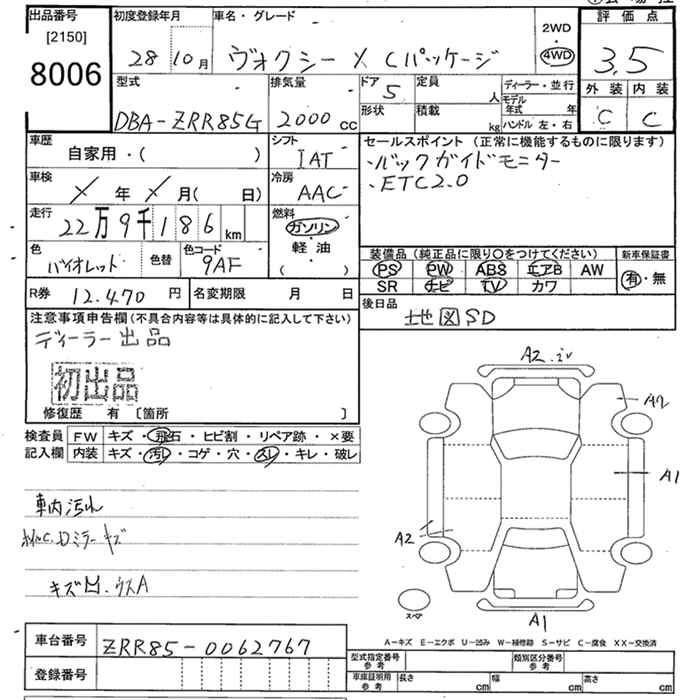 出品番号 初度登録年月 車名・グレード
[2150]
8006
28 10月 ヴォクシー X Cパッケージ
2WD
4WD
評価点
3.5
外装 内装
C C
型式 排気量 ドア 定員 ディーラー・並行
DBA-ZRR85G 2000cc 5 人 モデル年式 年
形状 積載 kg ハンドル 左・右
車歴 シフト
自家用・( ) IAT
車検 冷房
X年X月( 日) AAC
走行 燃料
22万9千186km ガソリン
軽油
( )
色 色替 色コード
バイオレット 9AF
R券 12.470円 名変期限 月 日
セールスポイント(正常に機能するものに限ります)
・バックガイドモニター
・ETC2.0
装備品(純正品に限り○をつけてください) 新車保証書
PS PW ABS エアB AW 有・無
SR ナビ TV カワ
後日品
地図SD
注意事項申告欄(不具合内容等は具体的に記入して下さい)
ディーラー出品
初出品
修復歴 有 [箇所 ]
検査員 FW キズ・飛石・ヒビ割・リペア跡・×要
記入欄 内装 キズ・汚レ・コゲ・穴・スレ・キレ・破レ
車内汚れ
A2
A2
A1
A2
スペア
A1
A-キズ E-エクボ U-凹み W-補修跡 S-サビ C-腐食 XX-交換済
車台番号 ZRR85-0062767
登録番号
型式指定番号 参考 類別区分番号 参考
車庫証明用 参考 長さ cm 幅 cm 高さ cm